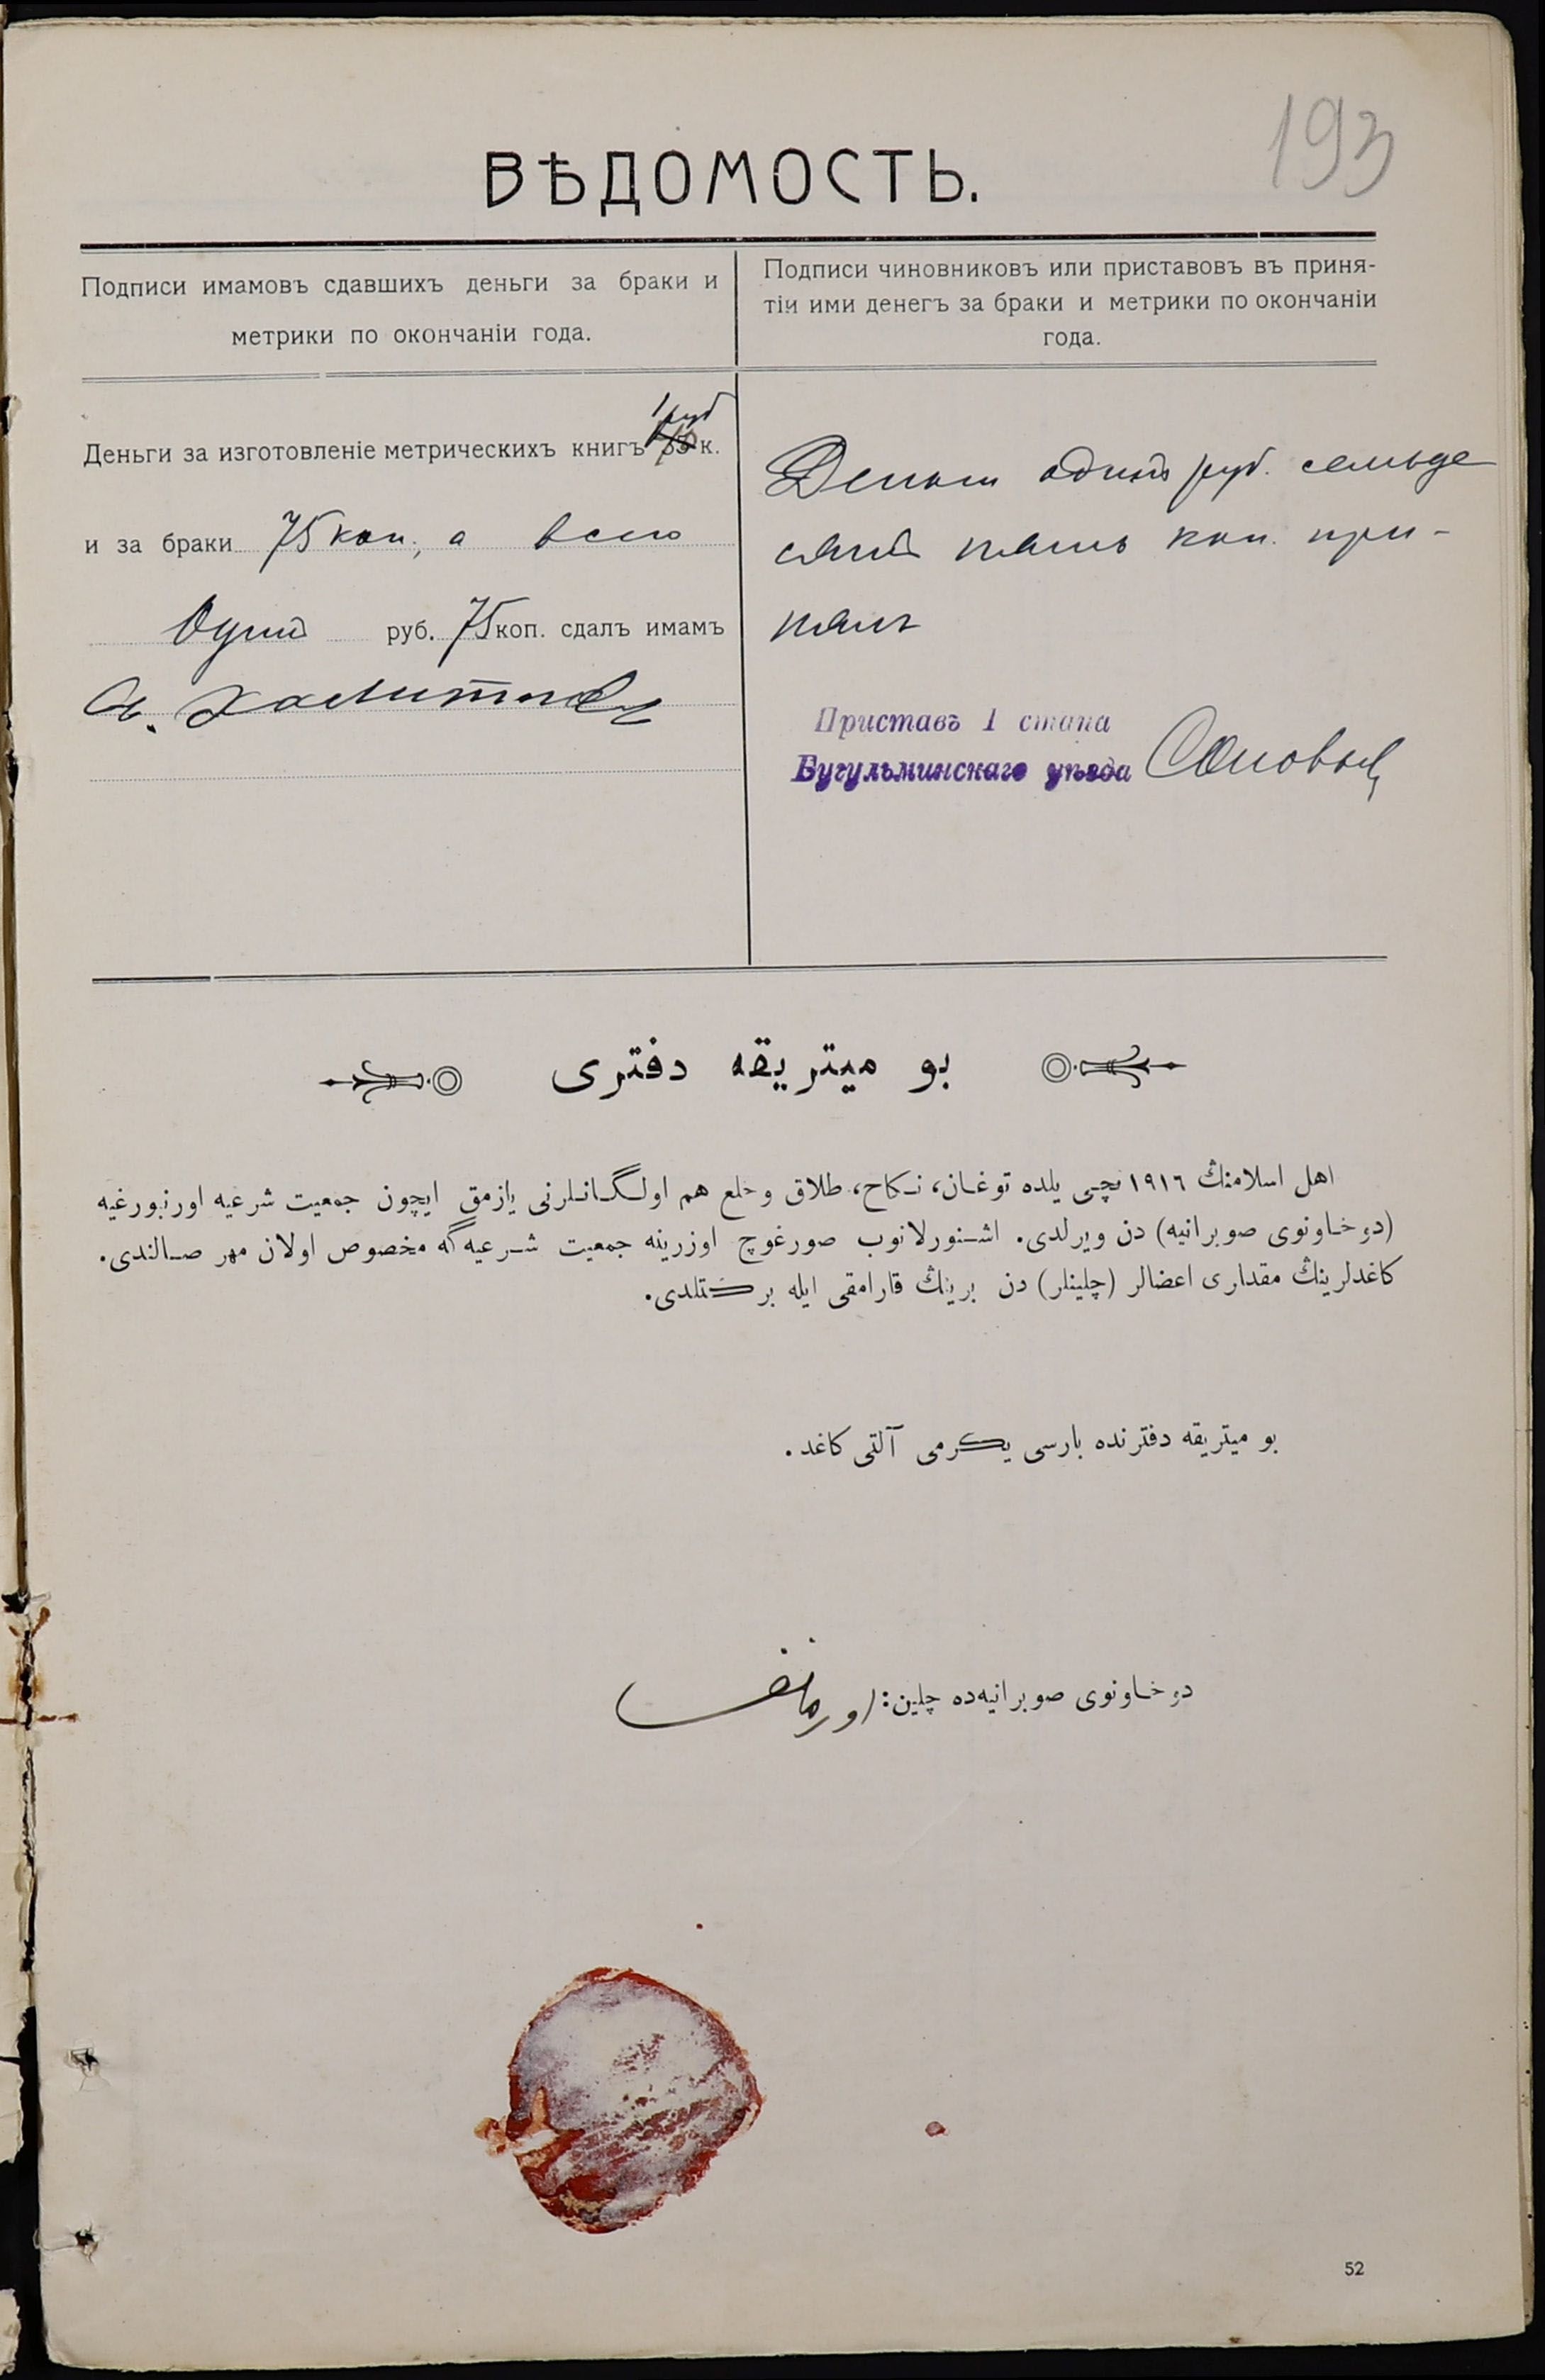 193
ВѢДОМОСТЬ.
Подписи имамовъ сдавшихъ деньги за браки и
метрики по окончаніи года.
Подписи чиновниковъ или приставовъ въ приня-
тіи ими денегъ за браки и метрики по окончаніи
года.
1 руб
Деньги за изготовленіе метрическихъ книгъ к.
и за браки 75 коп., а всего
Одинъ руб. 75 коп. сдалъ имамъ
Хамитов
Деньги одинъ руб. семьде
сятъ пять коп. при-
нялъ
Приставъ 1 стана
Бугульминскаго уѣзда
بو میتریقه دفتری
اهل اسلامنڭ ١٩١٦ نچی یلده توغان، نکاح، طلاق وخلع هم اولگانلرنی یازمق ایچون جمعیت شرعیه اورنبورغیه
(دوخاونوی صوبرانیه) دن ویرلدی. اشنورلانوب صورغوچ اوزرینه جمعیت شرعیه گه مخصوص اولان مهر صالندی.
کاغدلرینڭ مقداری اعضالر (چلینلر) دن برینڭ قارامقی ایله برکتلدی.
بو میتریقه دفترنده بارسی یکرمی آلتی کاغد.
دوخاونوی صوبرانیه‌ده چلین:
52